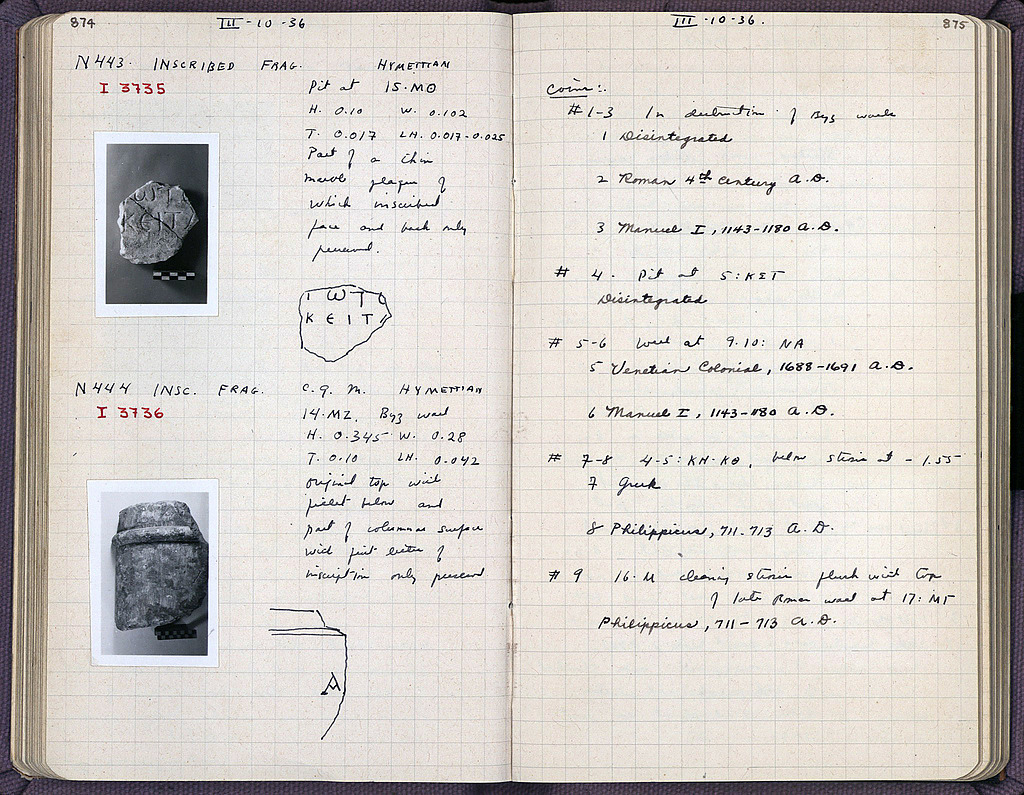 874
III-10-36
N 443. INSCRIBED FRAG. HYMETTIAN
I 3735
Pit at 15·ΜΘ
H. 0.10 W. 0.102
T. 0.017 LH. 0.017-0.025
Part of a thin
marble plaque of
which inscribed
face and back only
preserved.
ΩΤ
ΚΕΙΤ
Ι Ω Τ
Κ Ε Ι Τ
N 444 INSC. FRAG. C.G.M. HYMETTIAN
I 3736
14·ΜΖ, Byz wall
H. 0.345 W. 0.28
T. 0.10 LH. 0.042
original top with
fillet below and
part of columnar surface
with first letter of
inscription only preserved
A
III-10-36.
875
Coins:.
#1-3 In destruction of Byz walls
1 Disintegrated
2 Roman 4th Century A.D.
3 Manuel I, 1143-1180 A.D.
# 4. Pit at 5:ΚΣΤ
Disintegrated
# 5-6 Well at 9.10: ΝΑ
5 Venetian Colonial, 1688-1691 A.D.
6 Manuel I, 1143-1180 A.D.
# 7-8 4-5:ΚΗ-ΚΘ, below at -1.55
7 Greek
8 Philippicus, 711-713 A.D.
# 9 16·Μ cleaning flush with top
of late Roman wall at 17:
Philippicus, 711-713 A.D.